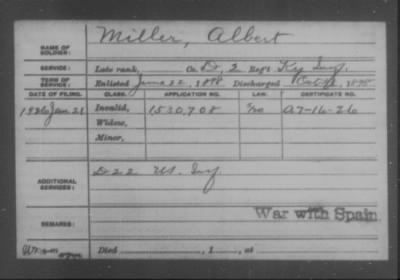 NAME OF SOLDIER: Miller, Albert
SERVICE: Late rank, Co. D, 2 Reg't Ky Inf.
TERM OF SERVICE: Enlisted June 22, 1898 Discharged Oct 1898
DATE OF FILING. CLASS. APPLICATION NO. LAW. CERTIFICATE NO.
1926 Jan 21 Invalid, 1530,708 A7-16-26
Widow,
Minor,
ADDITIONAL SERVICES: D 22 US. Inf
War with Spain
REMARKS:
Died , 1 , at